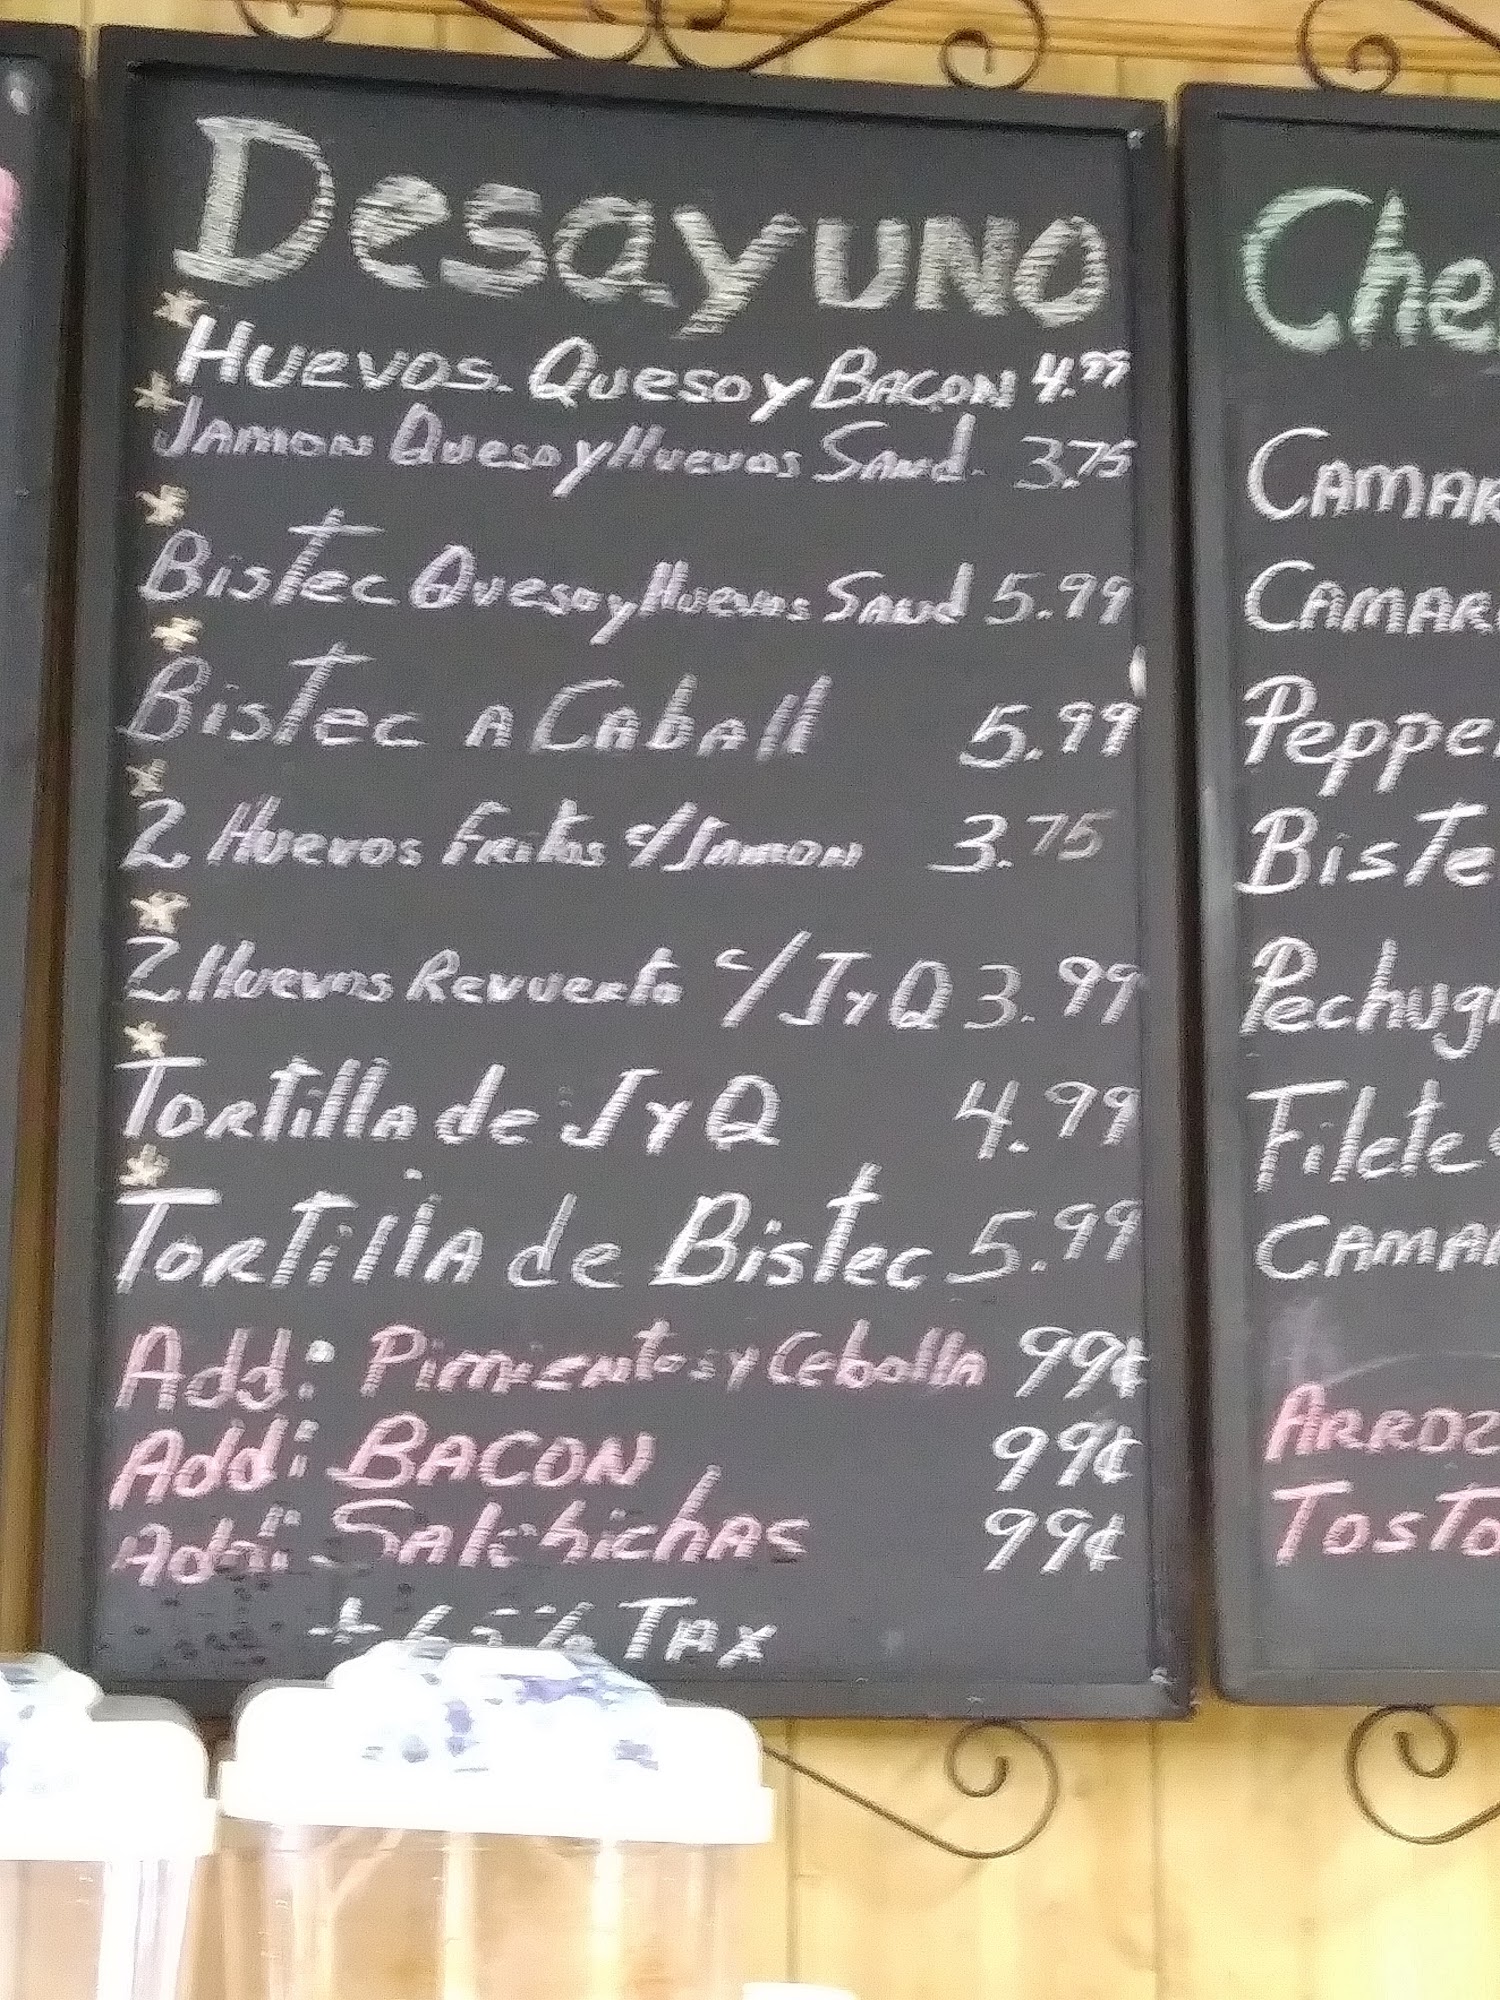 Desayuno
* Huevos Queso y Bacon 4.99
* Jamon Queso y Huevos Sand. 3.75
* Bistec Queso y Huevos Sand 5.99
* Bistec A Caball 5.99
* 2 Huevos Fritos c/Jamon 3.75
* 2 Huevos Revuerto c/JyQ 3.99
* Tortilla de J y Q 4.99
* Tortilla de Bistec 5.99
Add: Pimientos y Cebolla 99¢
Add: BACON 99¢
Add: Salchichas 99¢
Tax
Che
Camar
Camar
Pepper
Biste
Pechug
Filete
Camar
Arroz
Tosto